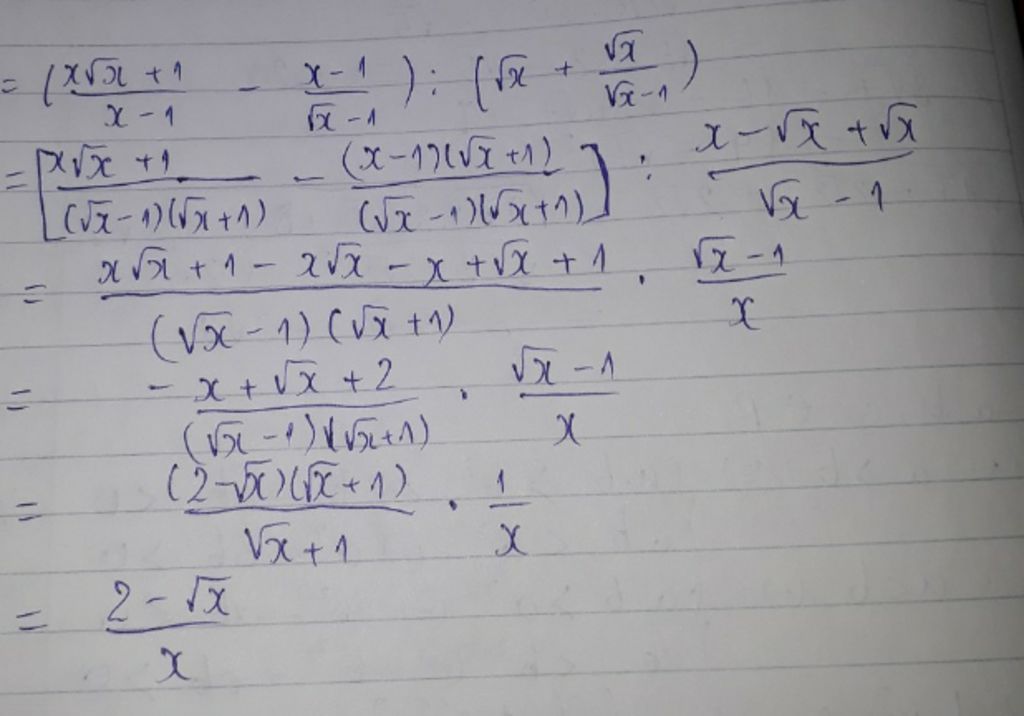 = (x√x + 1 / x - 1 - x - 1 / √x - 1) : (√x + √x / √x - 1)
= [x√x + 1 / (√x - 1)(√x + 1) - (x - 1)(√x + 1) / (√x - 1)(√x + 1)] : x - √x + √x / √x - 1
= x√x + 1 - x√x - x + √x + 1 / (√x - 1)(√x + 1) . √x - 1 / x
= - x + √x + 2 / (√x - 1)(√x + 1) . √x - 1 / x
= (2 - √x)(√x + 1) / √x + 1 . 1 / x
= 2 - √x / x